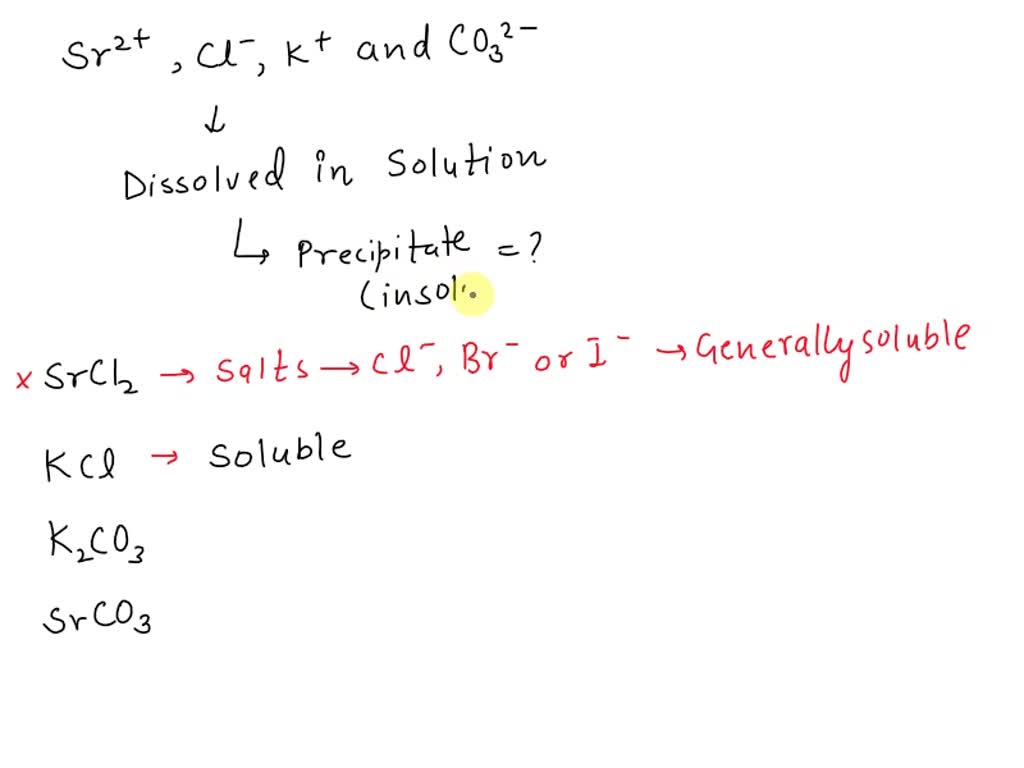 Sr²⁺, Cl⁻, K⁺ and CO₃²⁻
↓
Dissolved in Solution
↳ Precipitate = ?
(insol
× SrCl₂ → Salts → Cl⁻, Br⁻ or I⁻ → Generally soluble
KCl → Soluble
K₂CO₃
SrCO₃